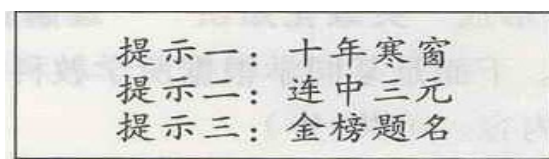 提示一：十年寒窗
提示二：连中三元
提示三：金榜题名